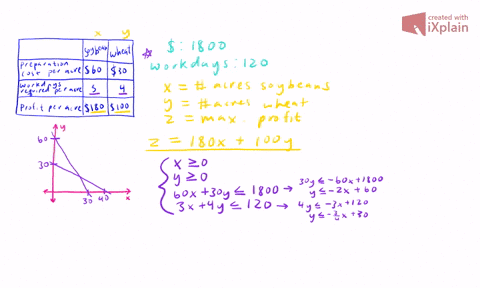 created with
iXplain
x y
soybean wheat
Preparation cost per acre $60 $30
workdays required per acre 3 4
Profit per acre $180 $100
$: 1800
workdays: 120
x = # acres soybeans
y = # acres wheat
z = max. profit
z = 180x + 100y
x ≥ 0
y ≥ 0
60x + 30y ≤ 1800 → 30y ≤ -60x + 1800
y ≤ -2x + 60
3x + 4y ≤ 120 → 4y ≤ -3x + 120
y ≤ -3/4x + 30
y
60
30
30 40 x